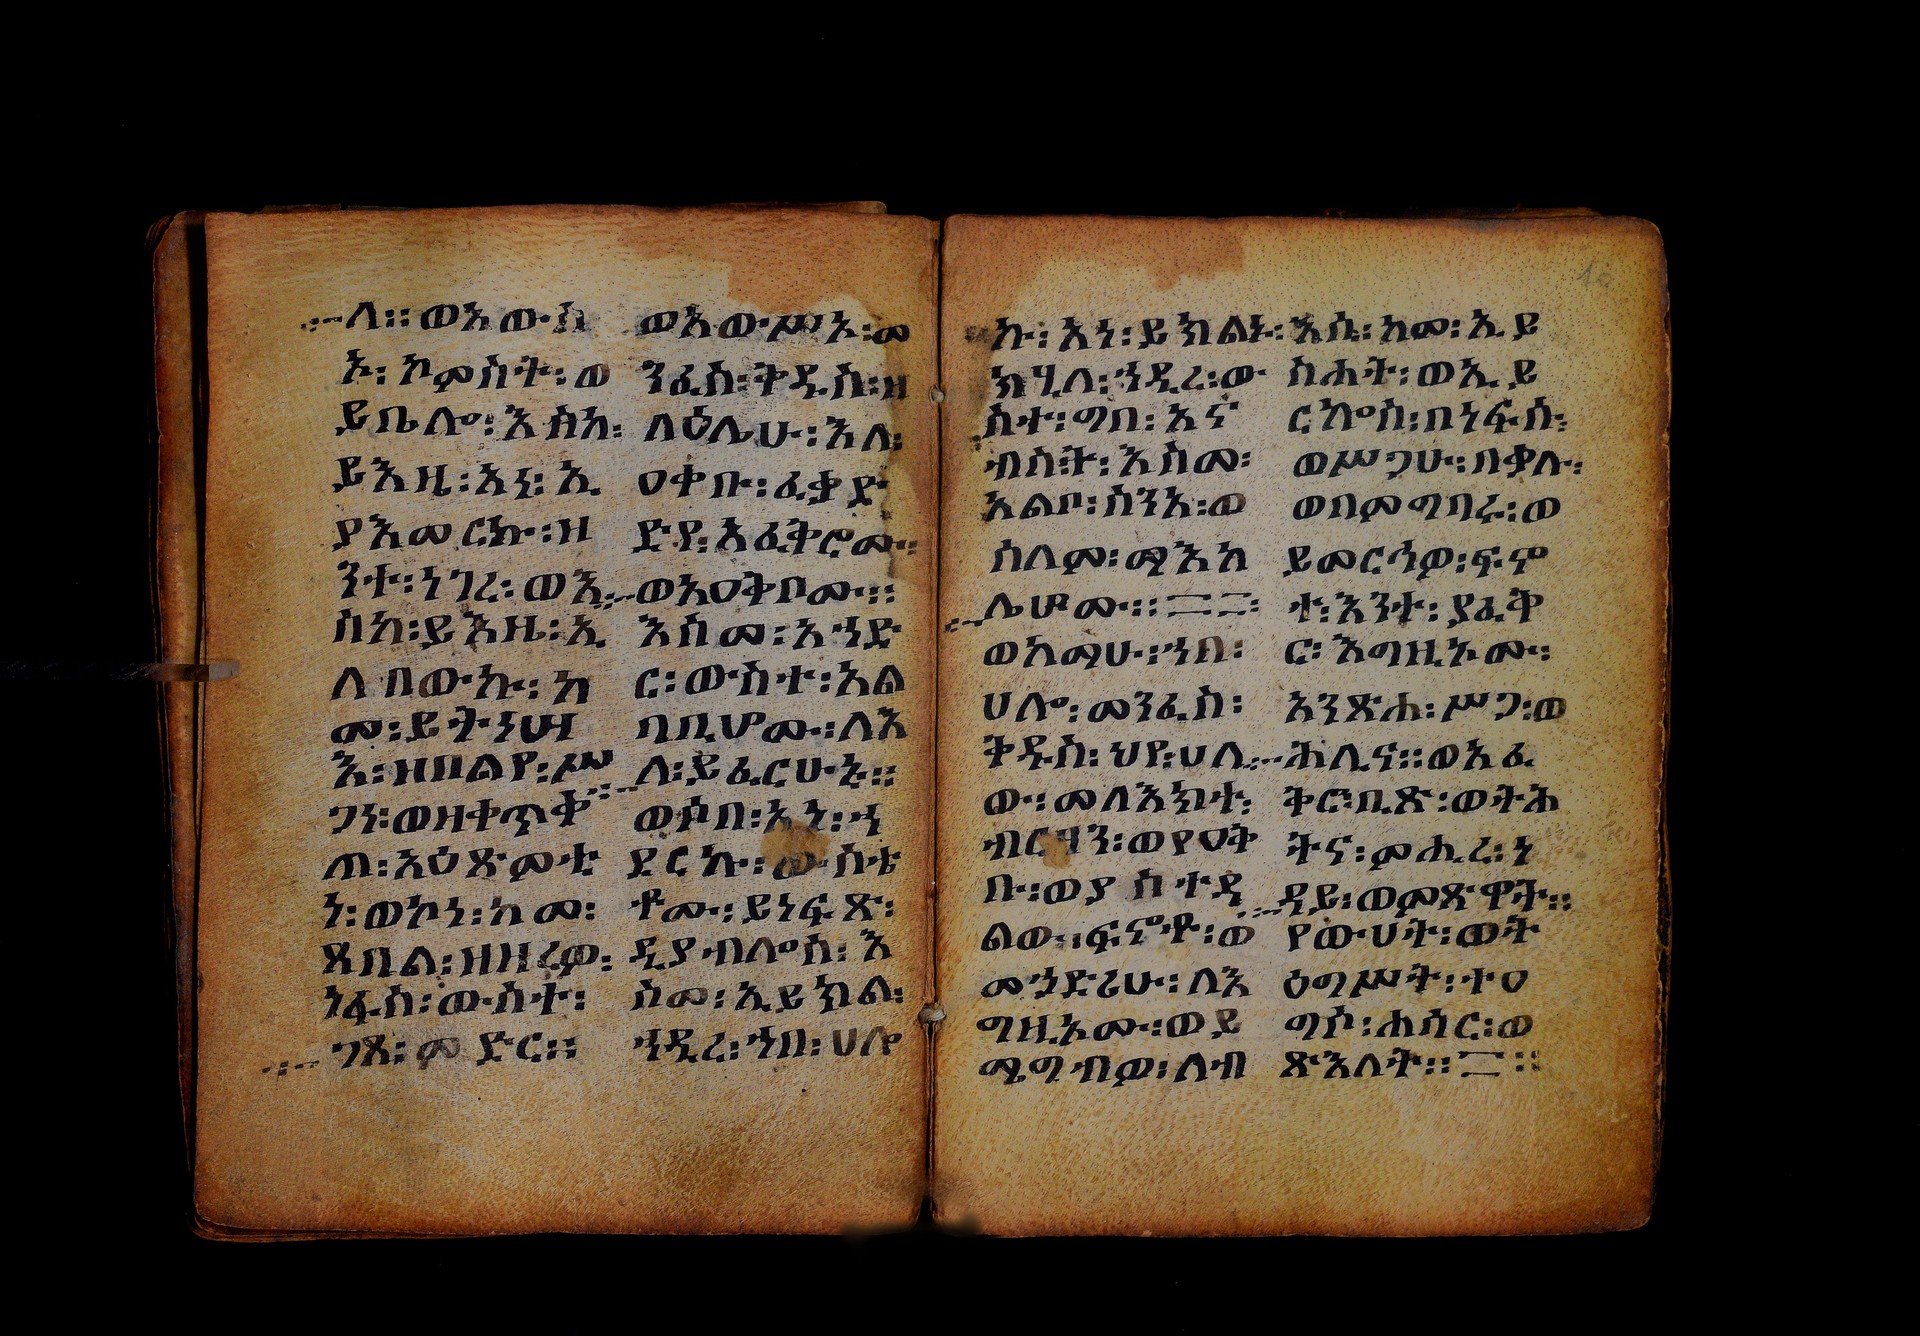 ለ፡፡ወአውሥ
አ፡ኦመስት፡ወ
ይቤሎ፡እስከ፡
ይእዜ፡አነ፡ኢ
ያእመርኩ፡ዘ
ንተ፡ነገረ፡ወእ
ስከ፡ይእዜ፡ኢ
ለበውኩ፡ከ
መ፡ይትነሣ
እ፡ዘበልየ፡ሥ
ጋነ፡ወዘቀጥቀ
ጠ፡አዕጽምቲ
ነ፡ወኮነ፡ከመ፡
ጸበል፡ዘዘረዎ፡
ነፋስ፡ውስተ፡
ገጸ፡ምድር፡፡
ወአውሥአ፡መ
ንፈስ፡ቅዱስ፡ዘ
ላዕሌሁ፡እለ፡
ዐቀቡ፡ፈቃድ
ድየ፡አፈቅሮሙ፡
ወአዐቅቦሙ፡፡
እስመ፡አኀድ
ር፡ውስተ፡አል
ባቢሆሙ፡ለእ
ለ፡ይፈርሁኒ፡፡
ወሶበ፡አነ፡ኀ
ደርኩ፡ውስቴ
ቶሙ፡ይነፍጽ፡
ዲያብሎስ፡እ
ስመ፡ኢይክል፡
ኀዲረ፡ኀበ፡ሀሎ
ኩ፡አነ፡ይክልኑ፡
ክሂለ፡ኀዲረ፡ው
ስተ፡ግበ፡አና
ብስት፡እስመ፡
አልቦ፡ስንአ፡ወ
ሰላም፡ማእከ
ሌሆሙ፡፡
ወከማሁ፡ኀበ፡
ሀሎ፡መንፈስ፡
ቅዱስ፡ህየ፡ሀለ
ው፡መላእክተ፡
ብርሃን፡ወየዐቅ
ቡ፡ወያስተዳ
ልው፡ፍኖቶ፡ወ
መኃድሪሁ፡ለእ
ግዚአሙ፡ወይ
ሜግብዎ፡ለብ
እሲ፡ከመ፡ኢይ
ስሐት፡ወኢይ
ርኰስ፡በነፍሱ፡
ወሥጋሁ፡በቃሉ፡
ወበምግባሩ፡ወ
ይመርሕዎ፡ፍኖ
ተ፡እንተ፡ያፈቅ
ር፡እግዚኦሙ፡
አንጽሐ፡ሥጋ፡ወ
ሕሊና፡፡ወአፈ
ቅሮ፡ቢጽ፡ወትሕ
ትና፡ምሒረ፡ነ
ዳይ፡ወምጽዋት፡፡
የውሀት፡ወት
ዕግሥት፡ተዐ
ግሶ፡ሐሳር፡ወ
ጽእለት፡፡